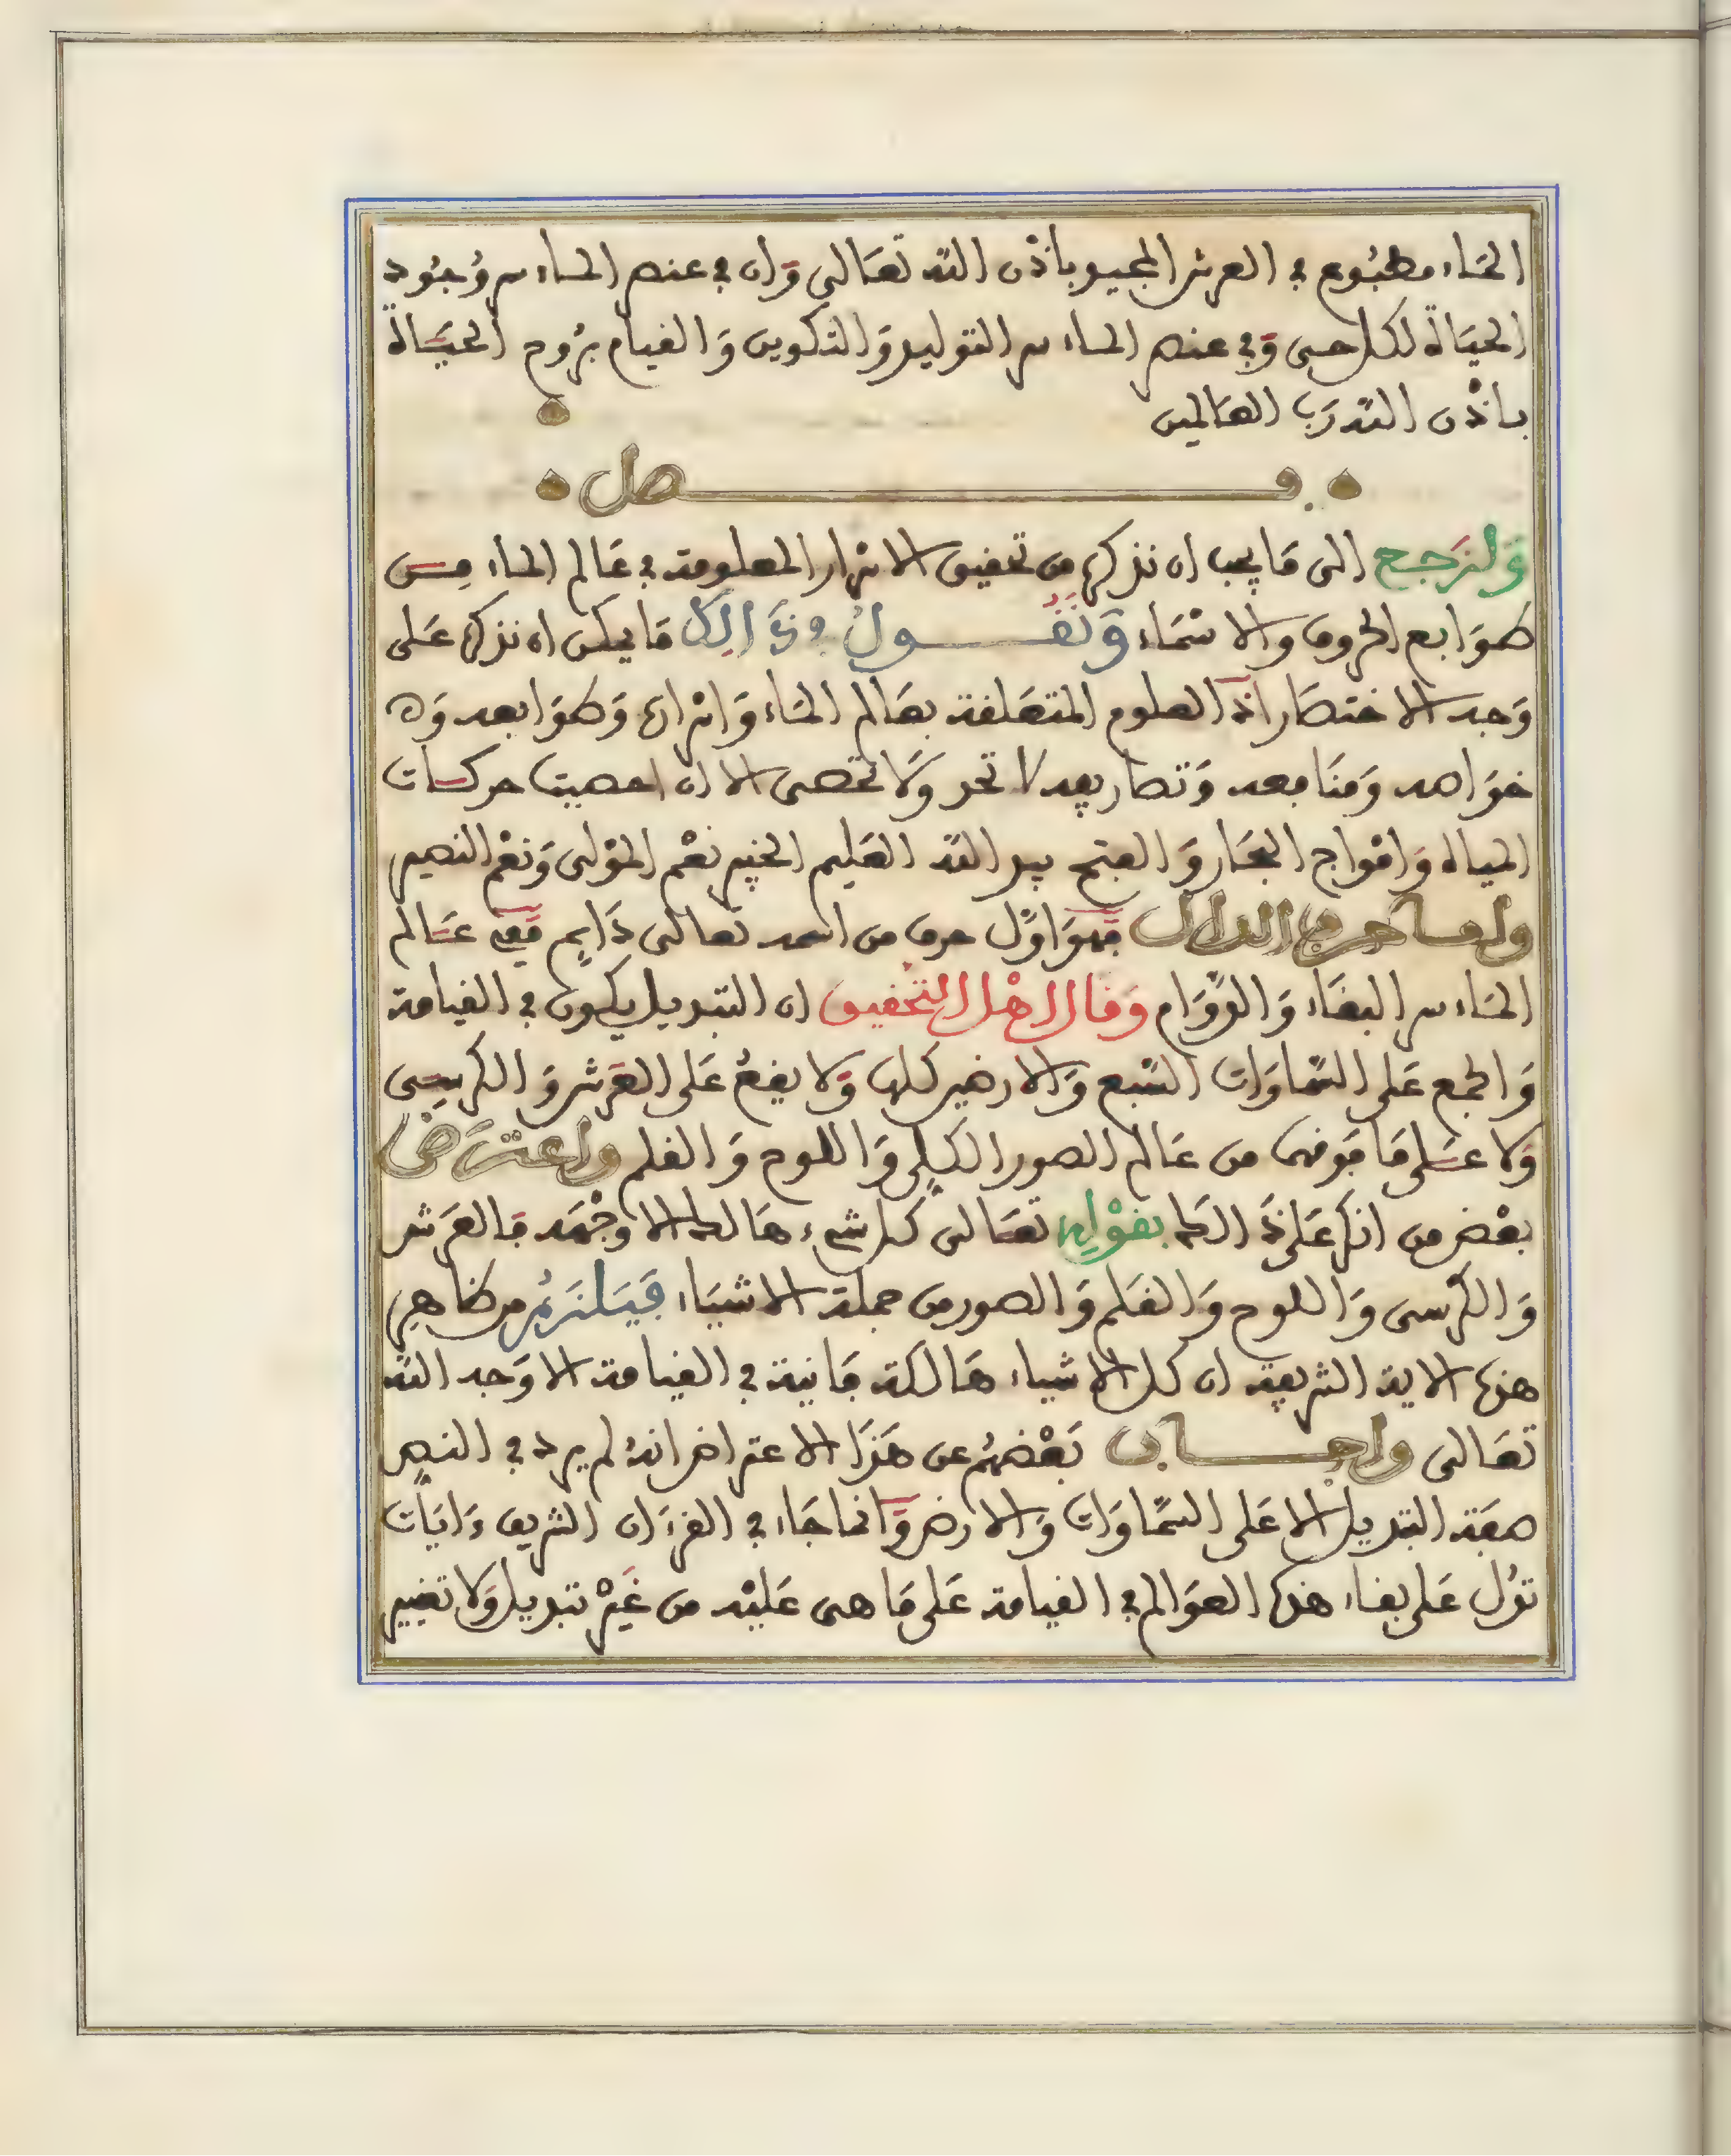 الماء مطبوع في العرش المجيد باذن الله تعالى وان في عنصر الماء سر وُجُود
الحياة لكل حى وفي عنصر الماء سر التوليد والتكوين والقيام بروح الحياة
باذن الله رب العالمين
فصل
ولنرجع الى ما يجب ان نذكره من تحقيق الاسرار المعلومة في عالم الماء من
طوابع الحروف والاسماء ونقول في ذالك ما يمكن ان نذكره على
وجه الاختصار ان العلوم المتعلقة بعالم الماء واسراره وطوابعه و
خواصه ومنافعه وتصاريفه لا تحد ولا تحصى الا ان احصيت حركات
المياه وامواج البحار والفتح بيد الله العليم الخبير نعم المولى ونعم النصير
واما حرف الدال فهو اول حرف من اسمه تعالى دايم ففي عالم
الماء سر البقاء والدوام وقال اهل التحقيق ان التبديل يكون في القيامة
والجمع على السماوات السبع والارضين كلها ولا يقع على العرش والكرسى
ولا على ما فوقهما من عالم الصور الكلي واللوح والقلم واعترض
بعض من انكر على ذالك بقوله تعالى كل شيء هالك الا وجهه فالعرش
والكرسى واللوح والقلم والصور من جملة الاشياء فيلزم من ظاهر
هذه الاية الشريفة ان كل الاشياء هالكة فانية في القيامة الا وجه الله
تعالى واجاب بعضهم عن هذا الاعتراض انه لم يرد في النص
صفة التبديل الا على السماوات والارض وانما جاء في القرءان الشريف ءايات
تدل على بقاء هذه العوالم في القيامة على ما هى عليه من غير تبديل ولا تغيير